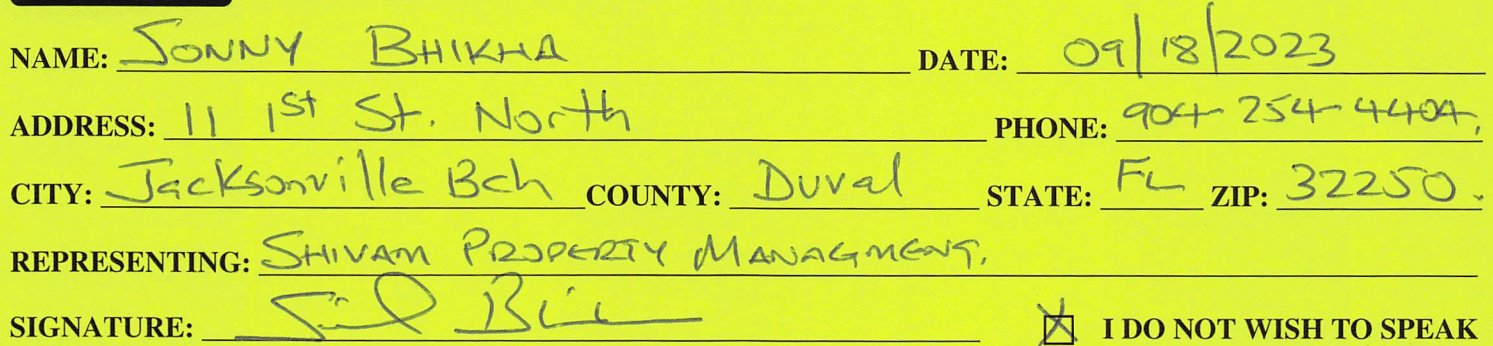 NAME: SONNY BHIKHA DATE: 09/18/2023
ADDRESS: 11 1st St. North PHONE: 904-254-4404.
CITY: Jacksonville Bch COUNTY: Duval STATE: FL ZIP: 32250.
REPRESENTING: SHIVAM PROPERTY MANAGMENT.
SIGNATURE: I DO NOT WISH TO SPEAK